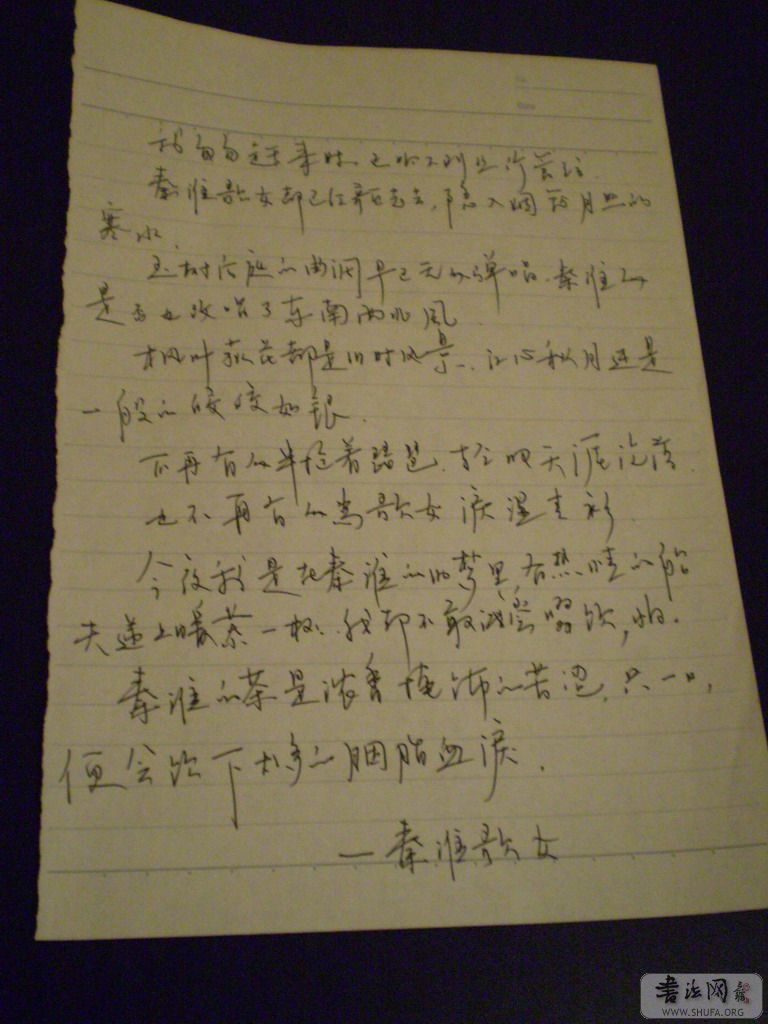 我匆匆赶来时,已
秦淮歌女却已经离去,隐入烟笼月照的
寒水
玉树后庭的曲调早已无人弹唱.秦淮人
是否也改唱了东南西北风
枫叶荻花都是旧时风景.江心秋月还是
一般的皎皎如银.
不再有人半抱着琵琶.天涯沦落.
也不再有人为歌女泪湿青衫.
今夜我是在秦淮的旧梦里,有热情的船
夫递上暖茶一杯.我却不敢啜饮,怕.
秦淮的茶是浓香掩饰的苦涩.只一口,
便会饮下太多的胭脂血泪.
—秦淮歌女
书法网
WWW.SHUFA.ORG